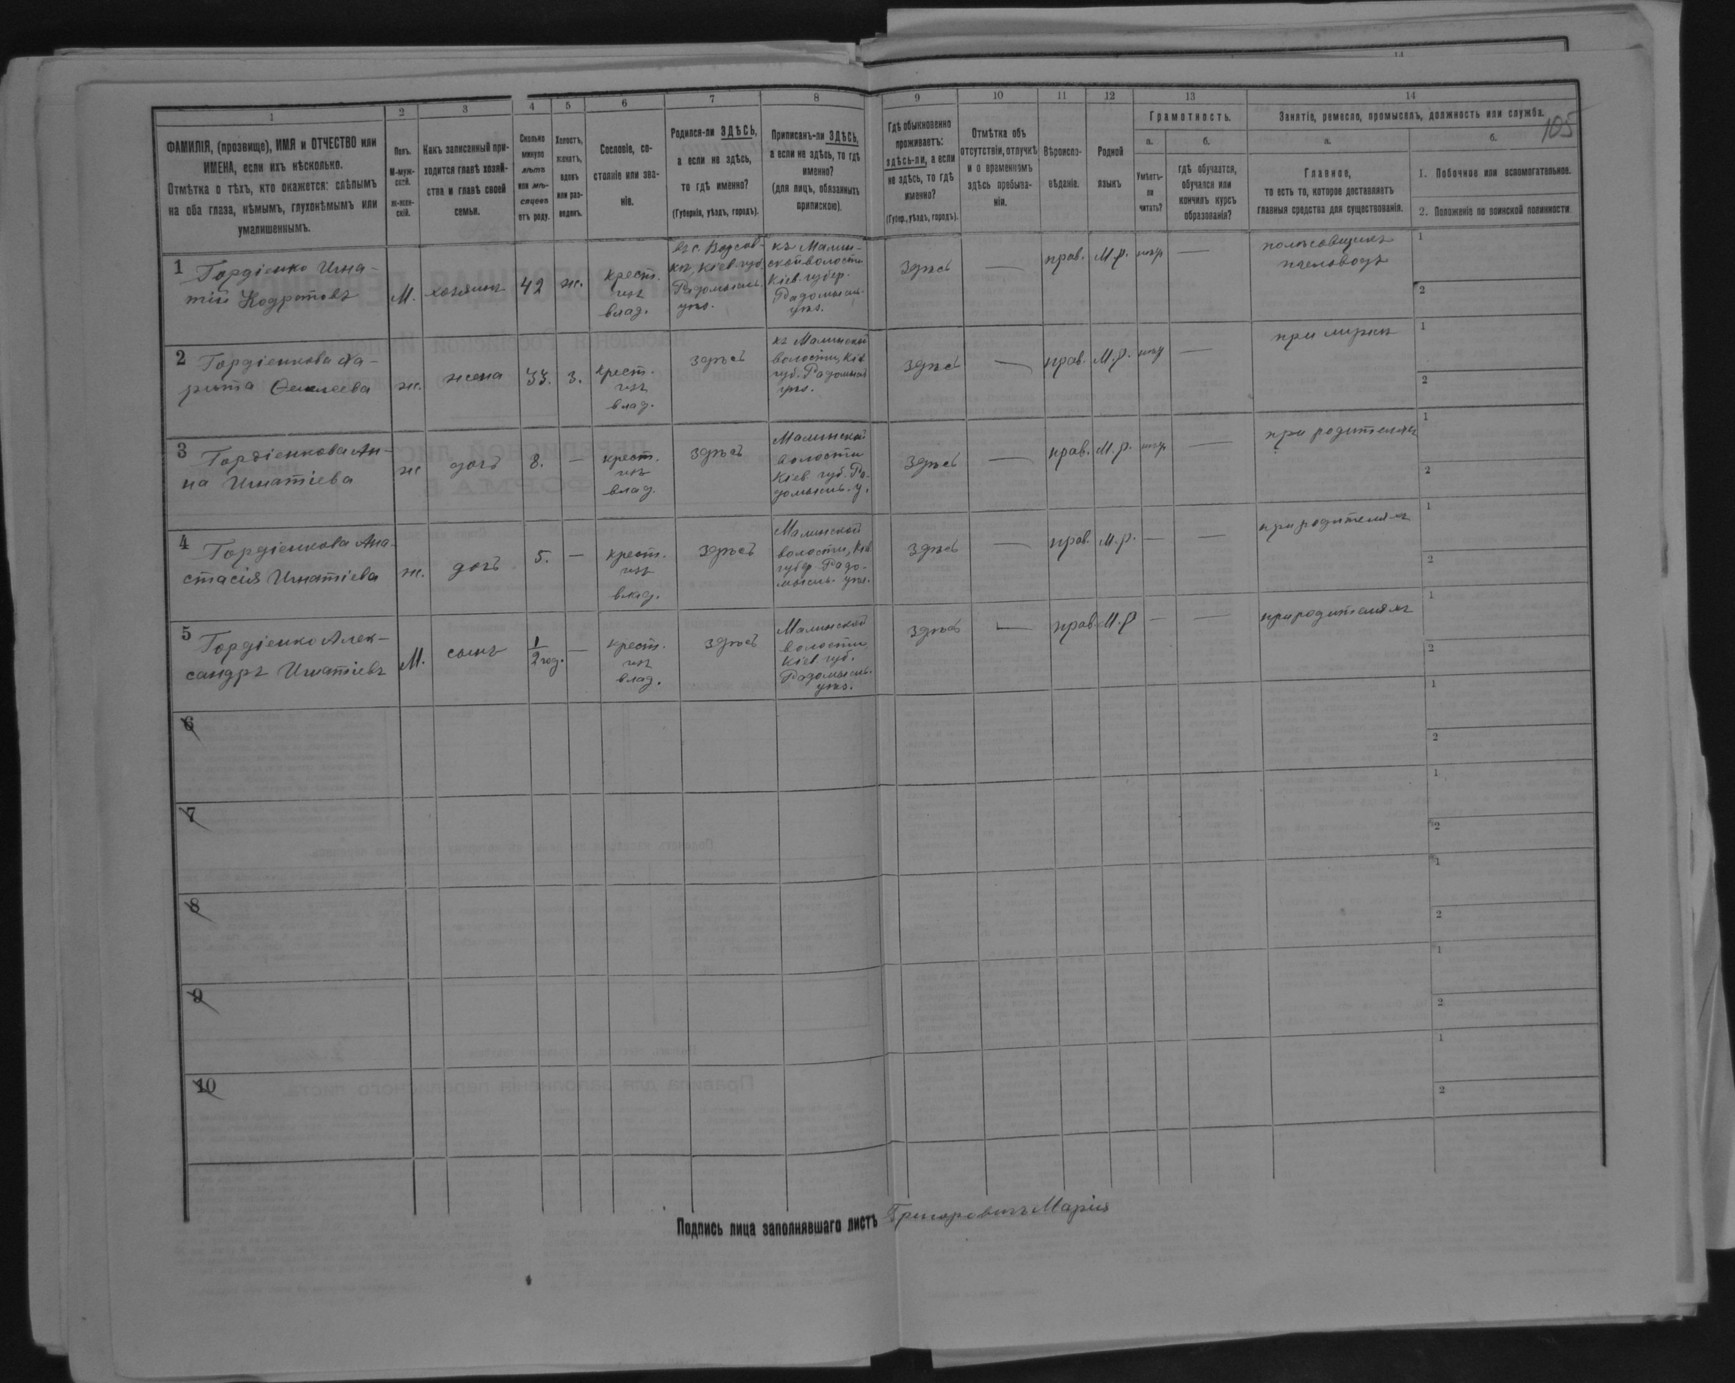 1
2
3
4
5
6
7
8
9
10
11
12
13
14
105
ФАМИЛІЯ, (прозвище), ИМЯ и ОТЧЕСТВО или
ИМЕНА, если ихъ нѣсколько.
Отмѣтка о тѣхъ, кто окажется: слѣпымъ
на оба глаза, нѣмымъ, глухонѣмымъ или
умалишеннымъ.
Полъ.
М-муж-
ской.
ж-жен-
скій.
Какъ записанный при-
ходится главѣ хозяй-
ства и главѣ своей
семьи.
Сколько
минуло
лѣтъ
или мѣ-
сяцевъ
отъ роду.
Холостъ,
женатъ,
вдовъ
или раз-
веденъ.
Сословіе, со-
стояніе или зва-
ніе.
Родился-ли ЗДѢСЬ,
а если не здѣсь,
то гдѣ именно?
(Губернія, уѣздъ, городъ).
Приписанъ-ли ЗДѢСЬ,
а если не здѣсь, то гдѣ
именно?
(для лицъ, обязанныхъ
припискою).
Гдѣ обыкновенно
проживаетъ:
здѣсь-ли, а если
не здѣсь, то гдѣ
именно?
(Губер., уѣздъ, городъ).
Отмѣтка объ
отсутствіи, отлучкѣ
и о временномъ
здѣсь пребыва-
ніи.
Вѣроиспо-
вѣданіе.
Родной
языкъ
Грамотность.
а.
Умѣетъ-
ли
читать?
б.
гдѣ обучается,
обучался или
кончилъ курсъ
образованія?
Занятіе, ремесло, промыселъ, должность или служба.
а.
Главное,
то есть то, которое доставляетъ
главныя средства для существованія.
б.
1. Побочное или вспомогательное.
2. Положеніе по воинской повинности.
1 Гордіенко Игна-
тій Кодратовъ
М. хозяинъ 42 ж. крест. изъ влад.
въ с.
Кіев. губ.
Радомысль.
уѣз.
къ Малин-
ской волости
Кіев. губер.
Радомысль.
уѣз.
Здѣсь — прав. М.р. —
пчеловодъ
1
2
2 Гордіенкова Ха-
рита
ж. жена з. крест. изъ влад. здѣсь
къ Малинской
волости, Кіев.
губ. Радомысл.
уѣз.
здѣсь — прав. М.р. —
1
2
3 Гордіенкова Ан-
на Игнатіева
ж дочь 8. — крест. изъ влад. здѣсь
Малинской
волости
Кіев. губ. Ра-
домысль. у.
здѣсь — прав. М.р. —
при родителяхъ
1
2
4 Гордіенкова Ана-
стасія Игнатіева
ж. дочь 5. — крест. изъ влад. здѣсь
Малинской
волости, Кіев.
губер. Радо-
мысль. уѣз.
здѣсь — прав. М.р. — —
при родителяхъ
1
2
5 Гордіенко Алек-
сандръ Игнатіевъ
М. сынъ 1/2 год. — крест. изъ влад. здѣсь
Малинской
волости
Кіев. губ.
Радомысль.
уѣз.
здѣсь — прав. М.р — —
при родителяхъ
1
2
6
1
2
7
1
2
8
1
2
9
1
2
10
1
2
Подпись лица заполнявшаго листъ Григоровичъ Марія